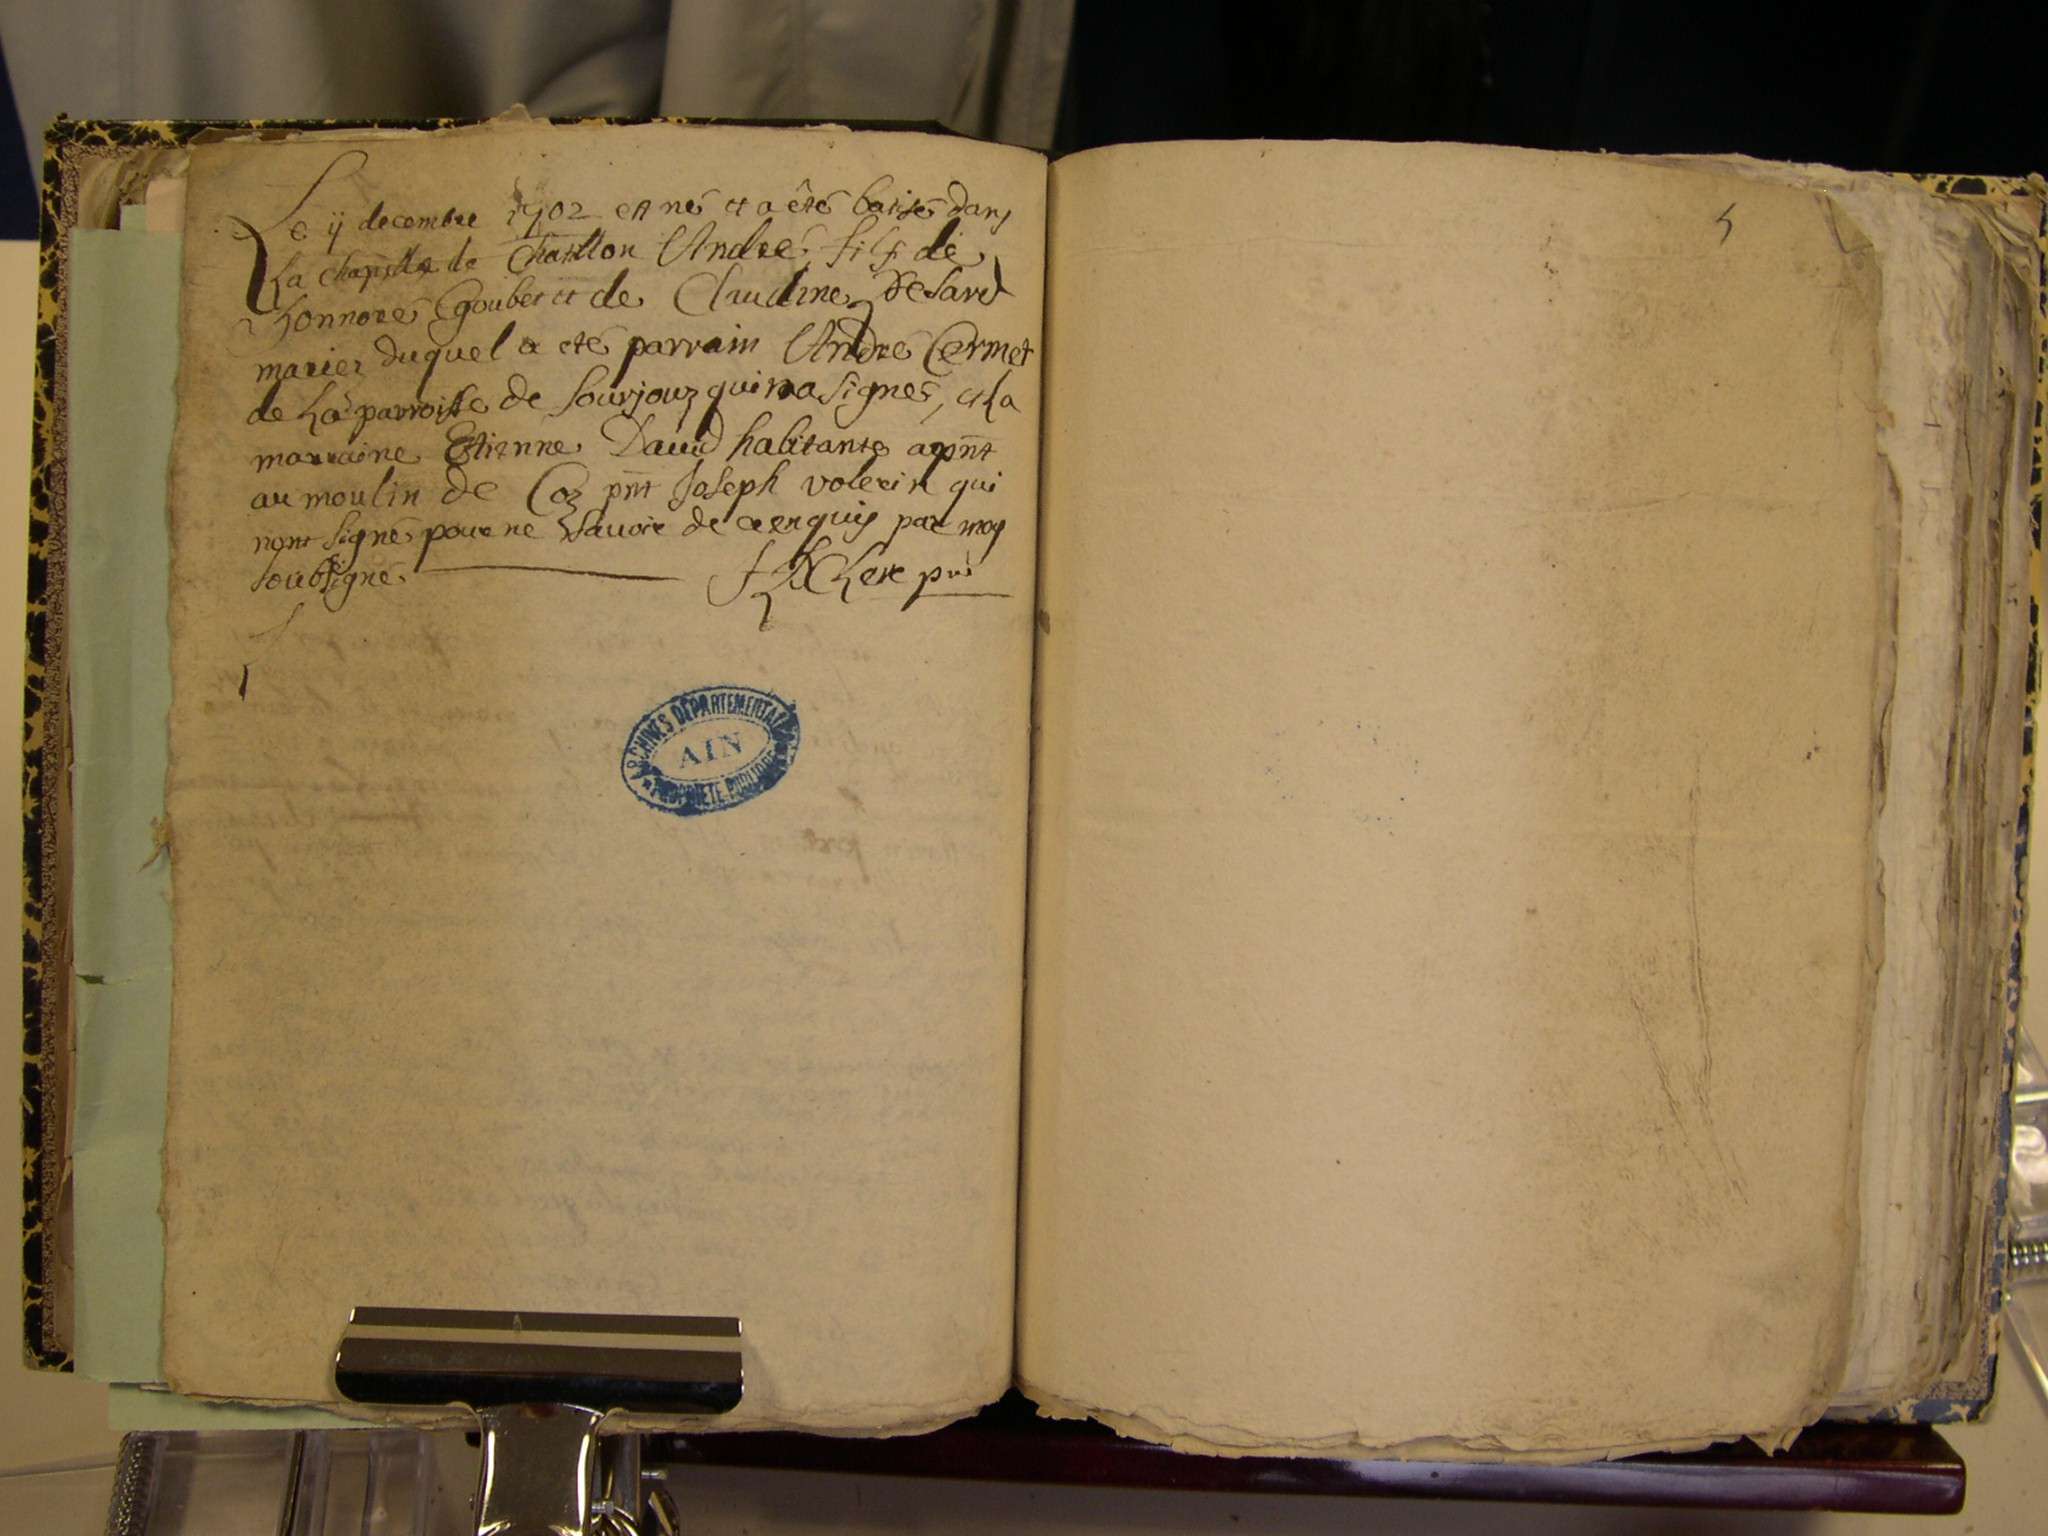 Le ij decembre 1702 est né et a êté batisé dans
La chapelle de Chatillon André fils de
honnoré Goubet et de Claudine Desard
mariez duquel a eté parrain André Cermet
de La parroisse de Sourjouz qui na signé, et La
marraine Etienne David habitante apnt
au moulin de Coz pnt Joseph volerin qui
nont signé pour ne Savoir de ce enquis par moy
soubsigné
ARCHIVES DEPARTEMENTALES
AIN
PROPRIETE PUBLIQUE
5